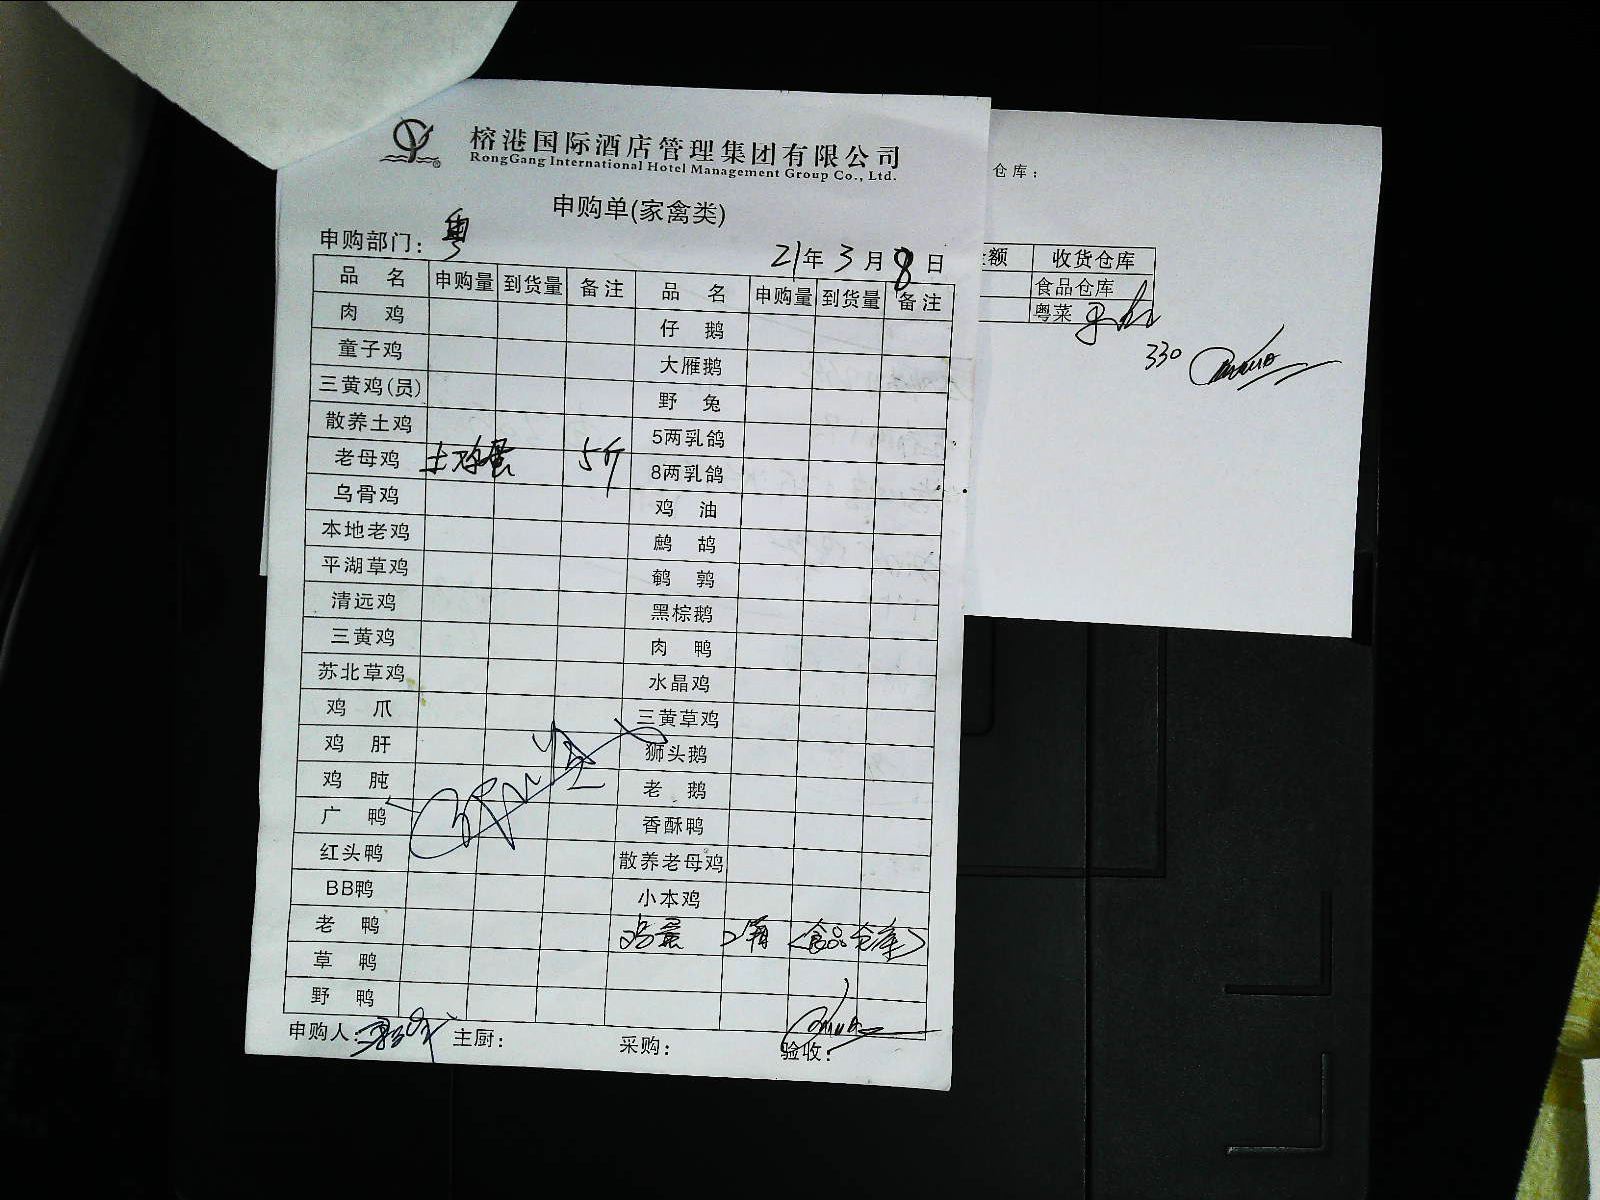 榕港国际酒店管理集团有限公司
RongGang International Hotel Management Group Co., Ltd.
申购单(家禽类)
申购部门: 粤
21年3月8日
品 名 申购量 到货量 备注 品 名 申购量 到货量 备注
肉 鸡 仔 鹅
童子鸡 大雁鹅
三黄鸡(员) 野 兔
散养土鸡 5两乳鸽
老母鸡 土鸡蛋 5斤 8两乳鸽
乌骨鸡 鸡 油
本地老鸡 鹧 鸪
平湖草鸡 鹌 鹑
清远鸡 黑棕鹅
三黄鸡 肉 鸭
苏北草鸡 水晶鸡
鸡 爪 三黄草鸡
鸡 肝 狮头鹅
鸡 肫 老 鹅
广 鸭 香酥鸭
红头鸭 散养老母鸡
BB鸭 小本鸡
老 鸭 鸡蛋 2箱 <食品仓库>
草 鸭
野 鸭
申购人: 主厨: 采购: 验收:
仓库:
额 收货仓库
食品仓库
粤菜
330